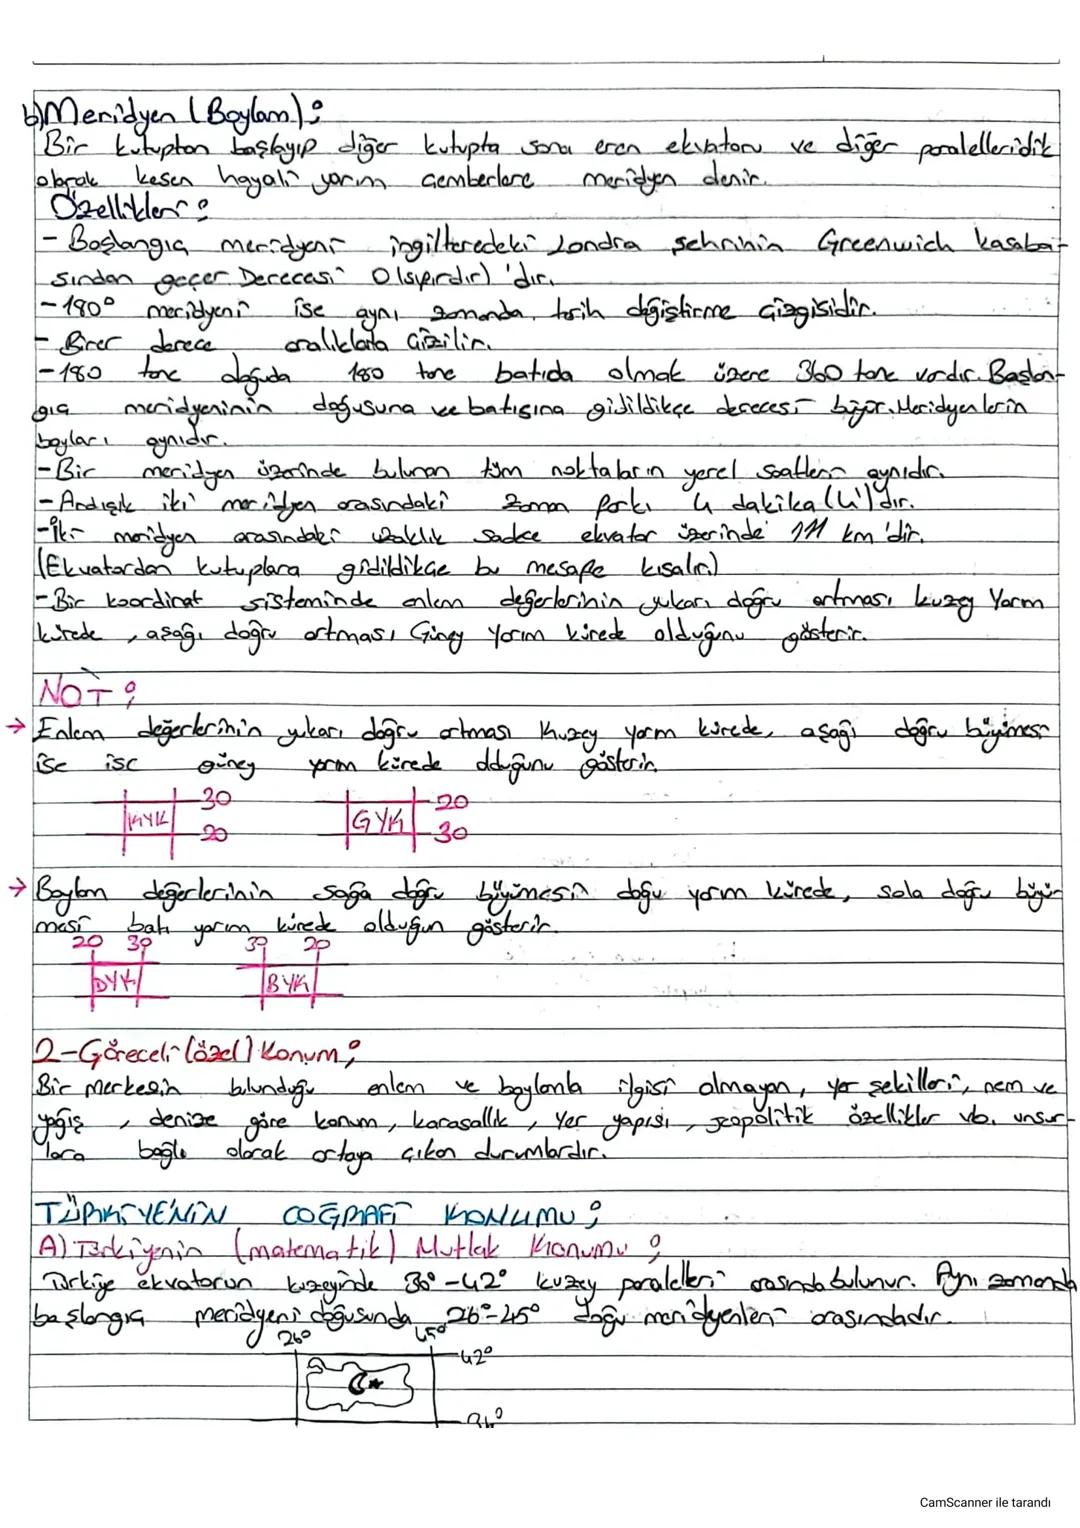 b) Meridyen (Boylam):
Bir kutuptan başlayıp diğer kutupta sona eren ekvatoru ve diğer paralelleri dik
olarak kesen hayali yarım çemberlere meridyen denir.
Özellikleri:
- Başlangıç meridyeni ingilteredeki Londra şehrinin Greenwich kasaba-
sından geçer. Derecesi 0 (sıfırdır) 'dır.
- 180° meridyeni ise aynı zamanda tarih değiştirme çizgisidir.
- Birer derece aralıklarla çizilir.
- 180 tane doğuda 180 tane batıda olmak üzere 360 tane vardır. Başlan-
gıç meridyeninin doğusuna ve batısına gidildikçe derecesi büyür. Meridyenlerin
boyları aynıdır.
- Bir meridyen üzerinde bulunan tüm noktaların yerel saatleri aynıdır.
- Ardışık iki meridyen arasındaki zaman farkı 4 dakika (4')dır.
- İki meridyen arasındaki uzaklık sadece ekvator üzerinde 111 km 'dir.
(Ekvatordan kutuplara gidildikçe bu mesafe kısalır.)
- Bir koordinat sisteminde enlem değerlerinin yukarı doğru artması kuzey Yarım
kürede, aşağı doğru artması Güney Yarım kürede olduğunu gösterir.
NOT:
→ Enlem değerlerinin yukarı doğru artması Kuzey yarım kürede, aşağı doğru büyümesi
ise ise güney yarım kürede olduğunu gösterir.
30 20
KYK GYK
20 30
→ Boylam değerlerinin sağa doğru büyümesi doğu yarım kürede, sola doğru büyü
mesi batı yarım kürede olduğun gösterir.
20 30 30 20
DYK BYK
2-Göreceli (özel) Konum:
Bir merkezin bulunduğu enlem ve boylamla ilgisi olmayan, yer şekilleri, nem ve
yağış, denize göre konum, karasallık, Yer yapısı, jeopolitik özellikler vb. unsur-
lara bağlı olarak ortaya çıkan durumlardır.
TÜRKİYENİN COĞRAFİ KONUMU:
A) Türkiyenin (matematik) Mutlak Konumu:
Türkiye ekvatorun kuzeyinde 36°-42° kuzey paralelleri arasında bulunur. Aynı zamanda
başlangıç meridyeni doğusunda 26°-45° doğu meridyenleri arasındadır.
26° 45°
42°
36°
CamScanner ile tarandı